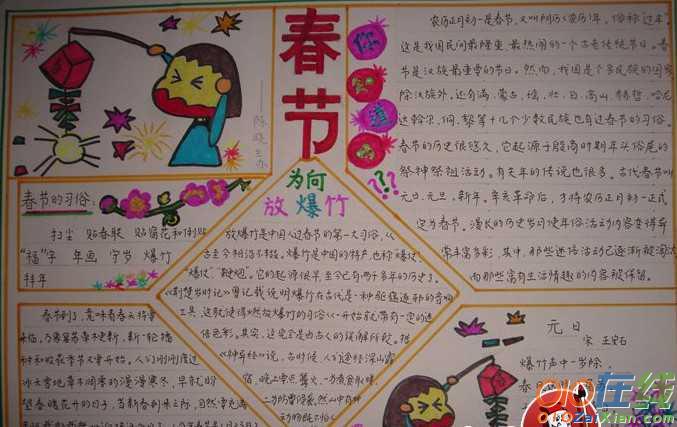 春节
陈晓兰办
你
知
道
???
农历正月初一是春节,又叫阴历(农历)年,俗称"过年"。
这是我国民间最隆重、最热闹的一个古老传统节日。春
节是汉族最重要的节日。然而,我国是个多民族的国家
除汉族外,还有满、蒙古、瑶、壮、白、高山、赫哲、哈尼
达斡尔、侗、黎等十几个少数民族也有过春节的习俗。
春节的历史很悠久,它起源于殷商时期年头俗尾的
祭神祭祖活动。有关年的传说也很多。古代春节叫
元日、元旦、新年。辛亥革命后,才将农历正月初一正式
定为春节。漫长的历史岁月使年俗活动内容变得异
常丰富多彩,其中,那些迷信活动已逐渐被淘汰
而那些富有生活情趣的内容被保留。
春节的习俗:
扫尘 贴春联 贴窗花和倒贴
"福"字 年画 守岁 爆竹
拜年
为何
放爆竹
放爆竹是中国人过春节的第一大习俗,从
古至今相沿不替。爆竹是中国的特产,也称"爆仗"、
"炮仗"、"鞭炮"。它的起源很早,至今已有两千多年的历史了。
《荆楚岁时记》曾记载说明爆竹在古代是一种驱瘟逐邪的音响
工具,这就使得燃放爆竹的习俗从一开始就带有一定的迷
信色彩。其实,这完全是由古人的误解所致。据
《神异经》说,古时候,人们途经深山露
宿,晚上要点篝火,一为煮食取暖,
二为防野兽侵袭。然山中有种
动物既不怕人
春节到了,意味着春天将要
来临,万象复苏草木更新,新一轮播
种和收获季节又要开始。人们刚刚度过
冰天雪地草木凋零的漫漫寒冬,早就盼
望春暖花开的日子,当新春到来之际,自然要充满
元日
宋 王安石
爆竹声中一岁除,
春
QQ在线
QQZaiXian.Com